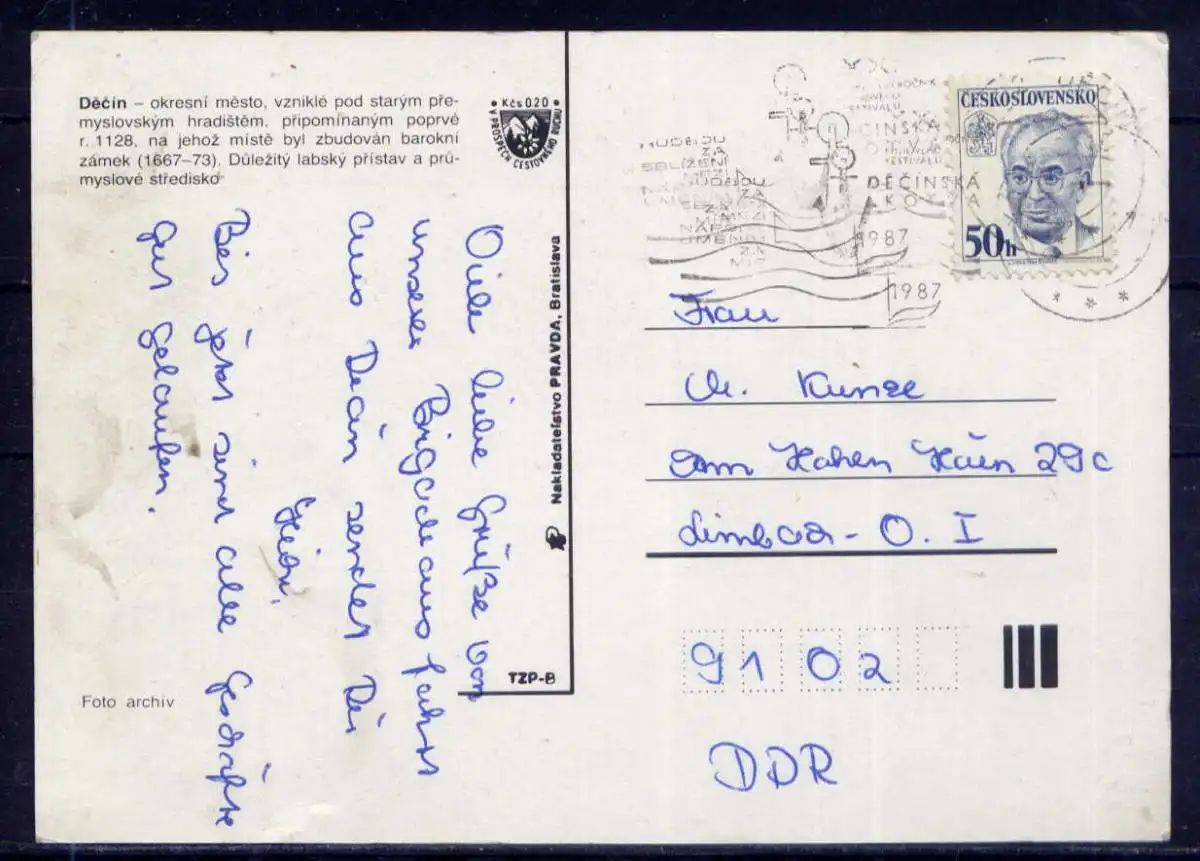 Děčín – okresní město, vzniklé pod starým pře-
myslovským hradištěm, připomínaným poprvé
r. 1128, na jehož místě byl zbudován barokní
zámek (1667–73). Důležitý labský přístav a prů-
myslové středisko
• Kčs 0,20 •
V PROSPĚCH CESTOVNÉHO RUCHU
Viele liebe Grüße von
unserer Brigadeausfahrt
aus Decin sendet Dir
Heidi.
Bis jetzt sind alle Geschäfte
gut gelaufen.
Nakladateľstvo PRAVDA, Bratislava
TZP-B
Foto archiv
ČESKOSLOVENSKO
50h
HUDBOU
ZA
SBLÍŽENÍ
MEZI
NÁRODY
DĚČÍNSKÁ
KOTVA
1987
1987
Frau
M. Kunze
Am Hohen Hain 29c
Limbach - O. I
9102
DDR